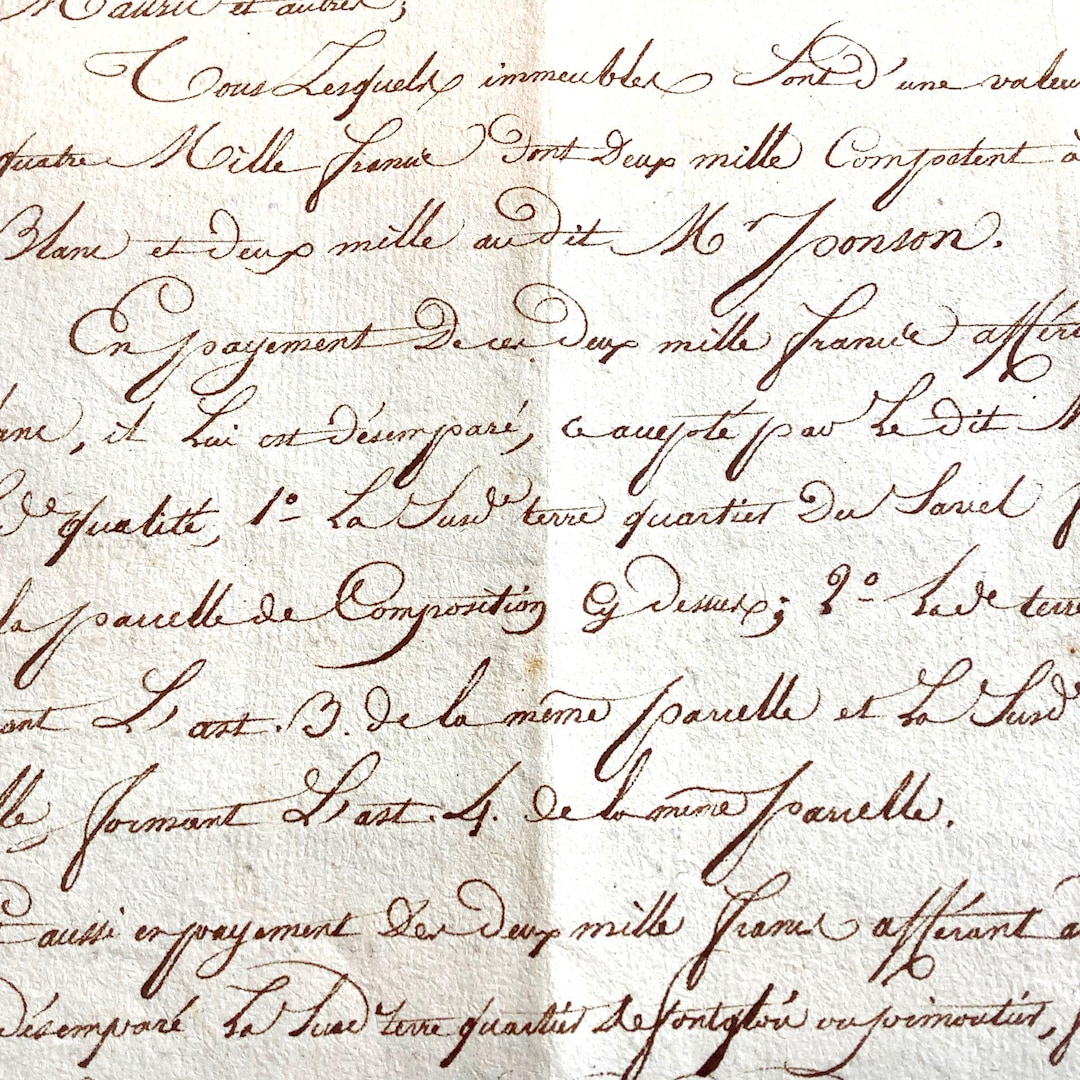 et autres;
Tous Lesquels immeubles Sont d'une valeur
quatre Mille francs dont Deux mille Competent à
Blanc et deux mille audit Mr Ponson.
En payement De ces deux mille francs affére
il Lui est désemparé, ce accepté par Le dit
qualité, 1o La Susde terre quartier Du Savel
la parcelle de Composition Cy dessus; 2o Lade terre
ant L'art. 3. de la même parcelle et La Susde
lle, formant L'art. 4. de la même parcelle.
Et aussi en payement Des deux mille francs afférant à
désemparé La Susde terre quartier de ou pimoutier,